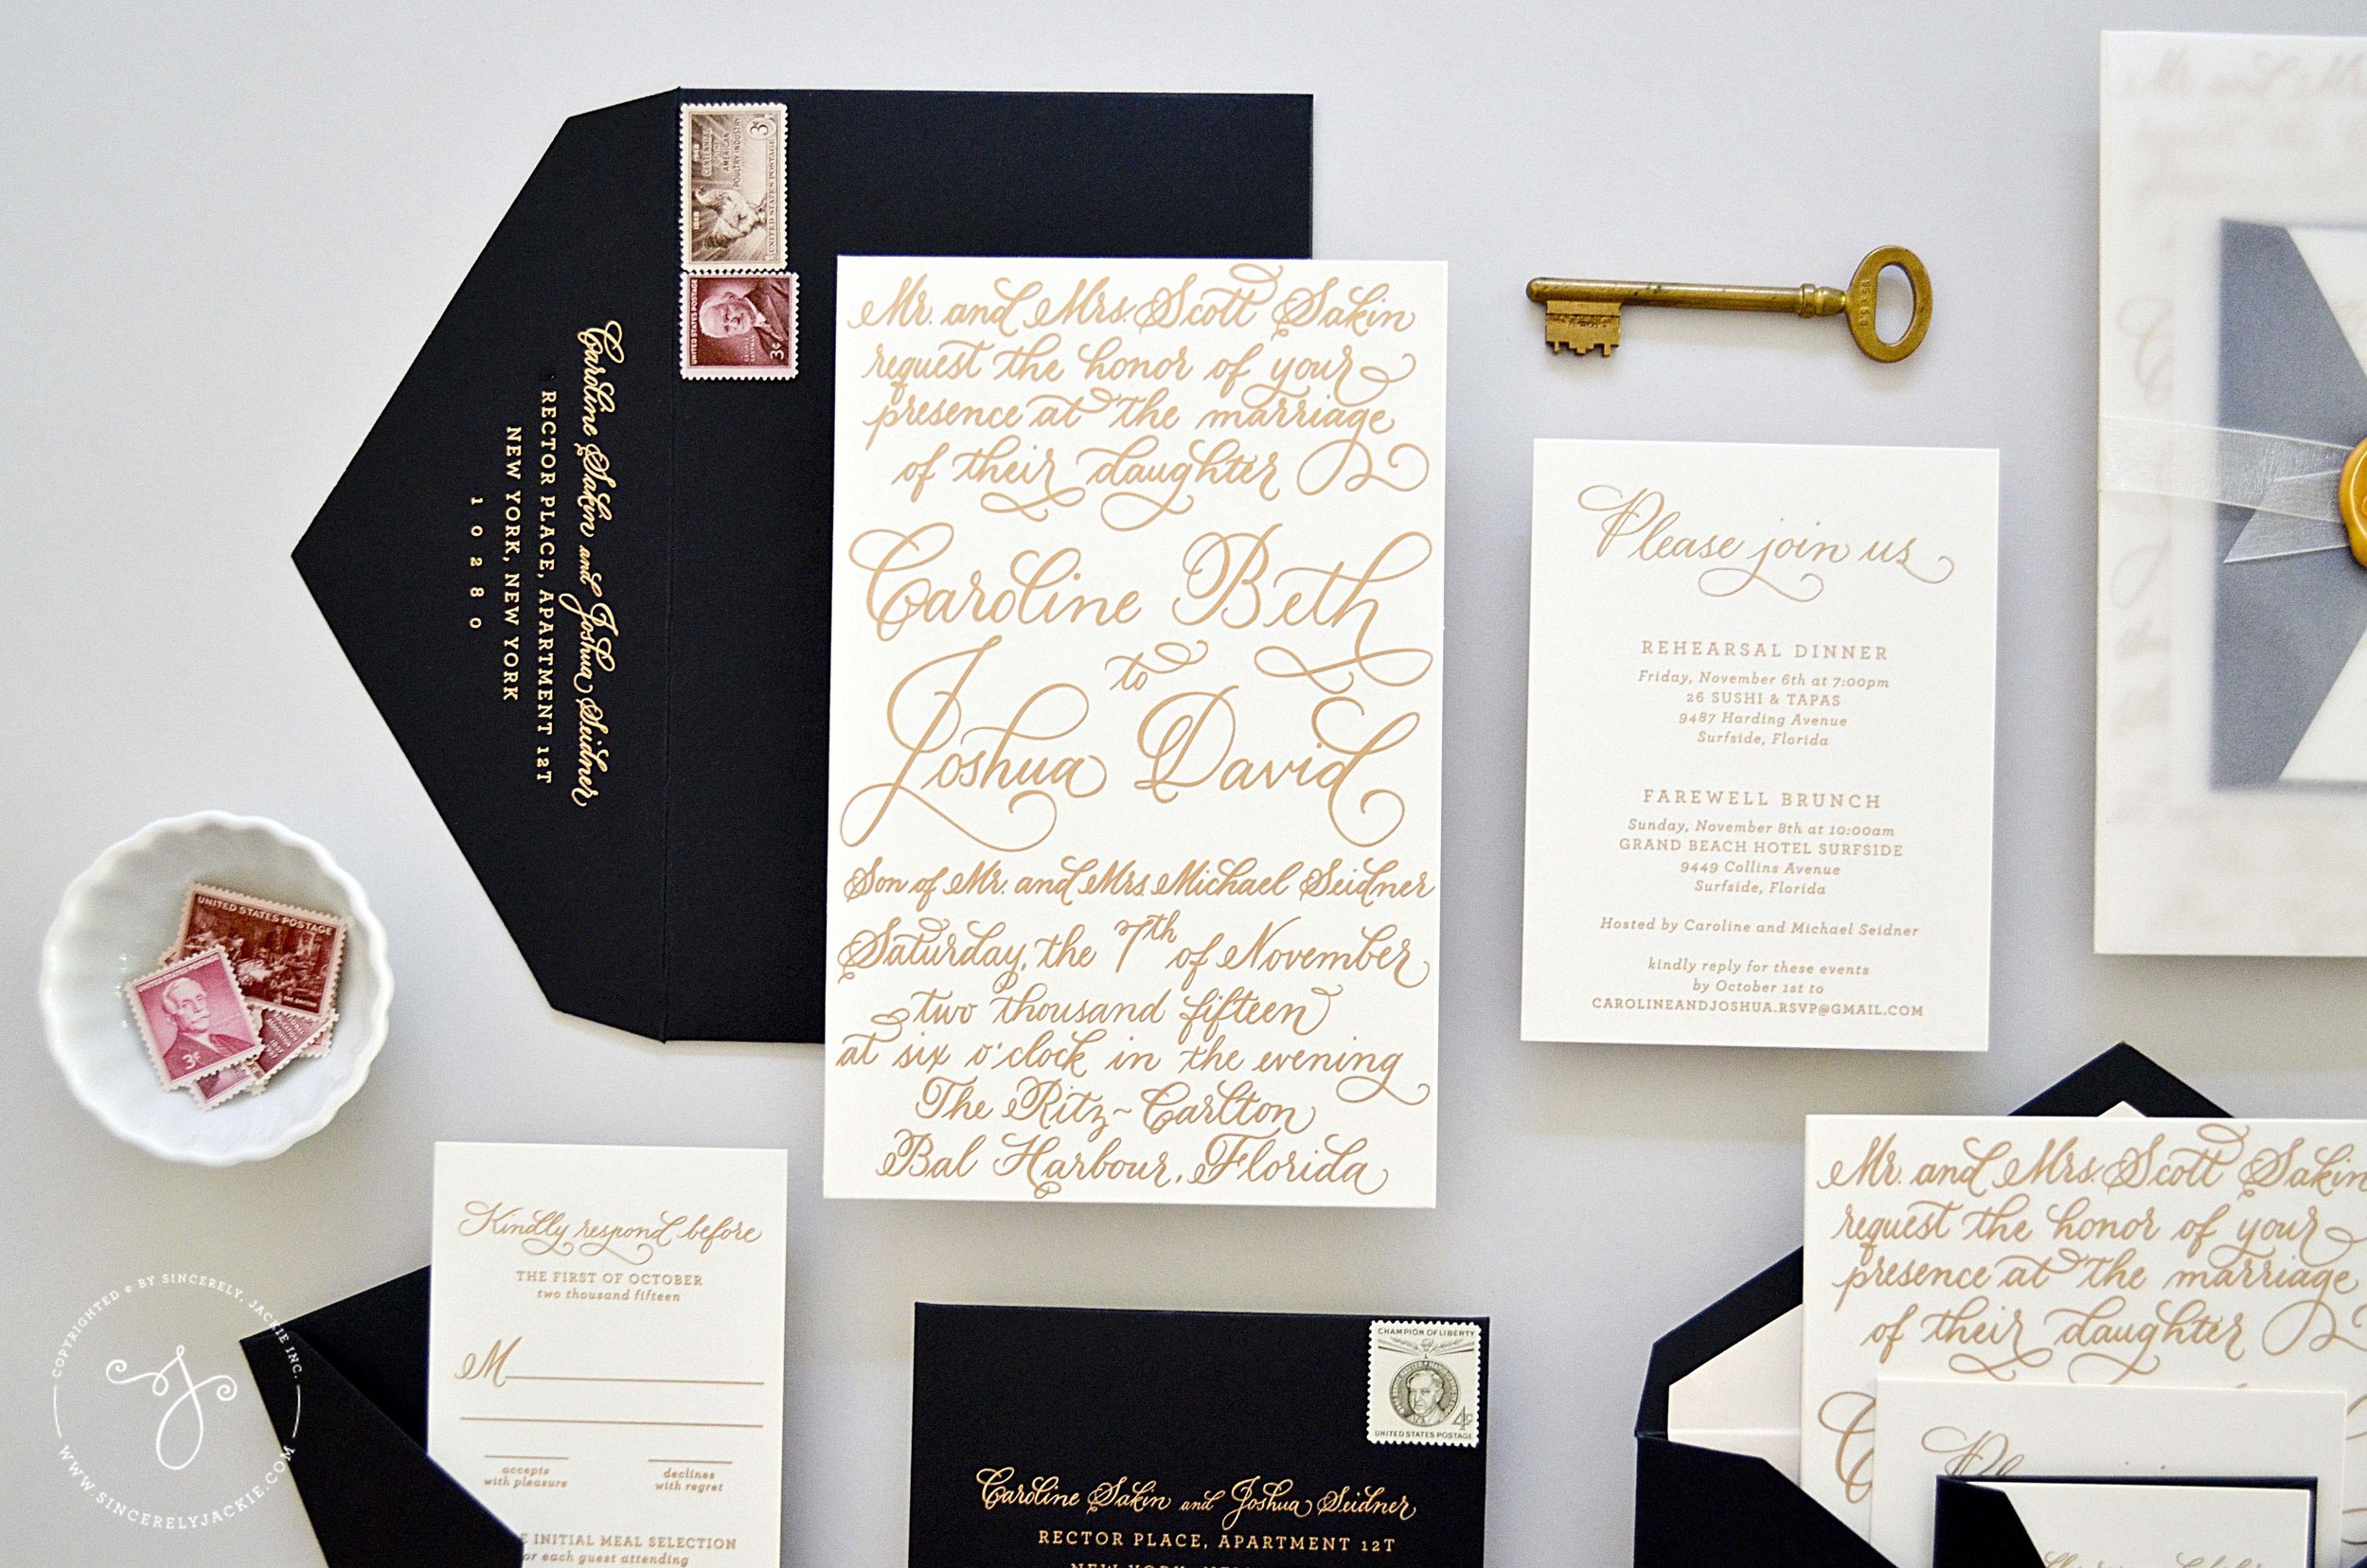 Caroline Sakin and Joshua Seidner
RECTOR PLACE, APARTMENT 12T
NEW YORK, NEW YORK
10280
1848 1948
CENTENNIAL
OF THE
AMERICAN
POULTRY INDUSTRY
3¢
UNITED STATES POSTAGE
UNITED STATES POSTAGE
3¢
Mr. and Mrs. Scott Sakin
request the honor of your
presence at the marriage
of their daughter
Caroline Beth
to
Joshua David
Son of Mr. and Mrs. Michael Seidner
Saturday, the 7th of November
two thousand fifteen
at six o'clock in the evening
The Ritz~Carlton
Bal Harbour, Florida
Please join us
REHEARSAL DINNER
Friday, November 6th at 7:00pm
26 SUSHI & TAPAS
9487 Harding Avenue
Surfside, Florida
FAREWELL BRUNCH
Sunday, November 8th at 10:00am
GRAND BEACH HOTEL SURFSIDE
9449 Collins Avenue
Surfside, Florida
Hosted by Caroline and Michael Seidner
kindly reply for these events
by October 1st to
CAROLINEANDJOSHUA.RSVP@GMAIL.COM
UNITED STATES POSTAGE
THE DOCTOR
UNITED STATES POSTAGE
3¢
Kindly respond before
THE FIRST OF OCTOBER
two thousand fifteen
M
accepts
with pleasure
declines
with regret
INITIAL MEAL SELECTION
for each guest attending
CHAMPION OF LIBERTY
4¢
UNITED STATES POSTAGE
Caroline Sakin and Joshua Seidner
RECTOR PLACE, APARTMENT 12T
Mr. and Mrs. Scott Sakin
request the honor of your
presence at the marriage
of their daughter
COPYRIGHTED © BY SINCERELY, JACKIE INC.
WWW.SINCERELYJACKIE.COM